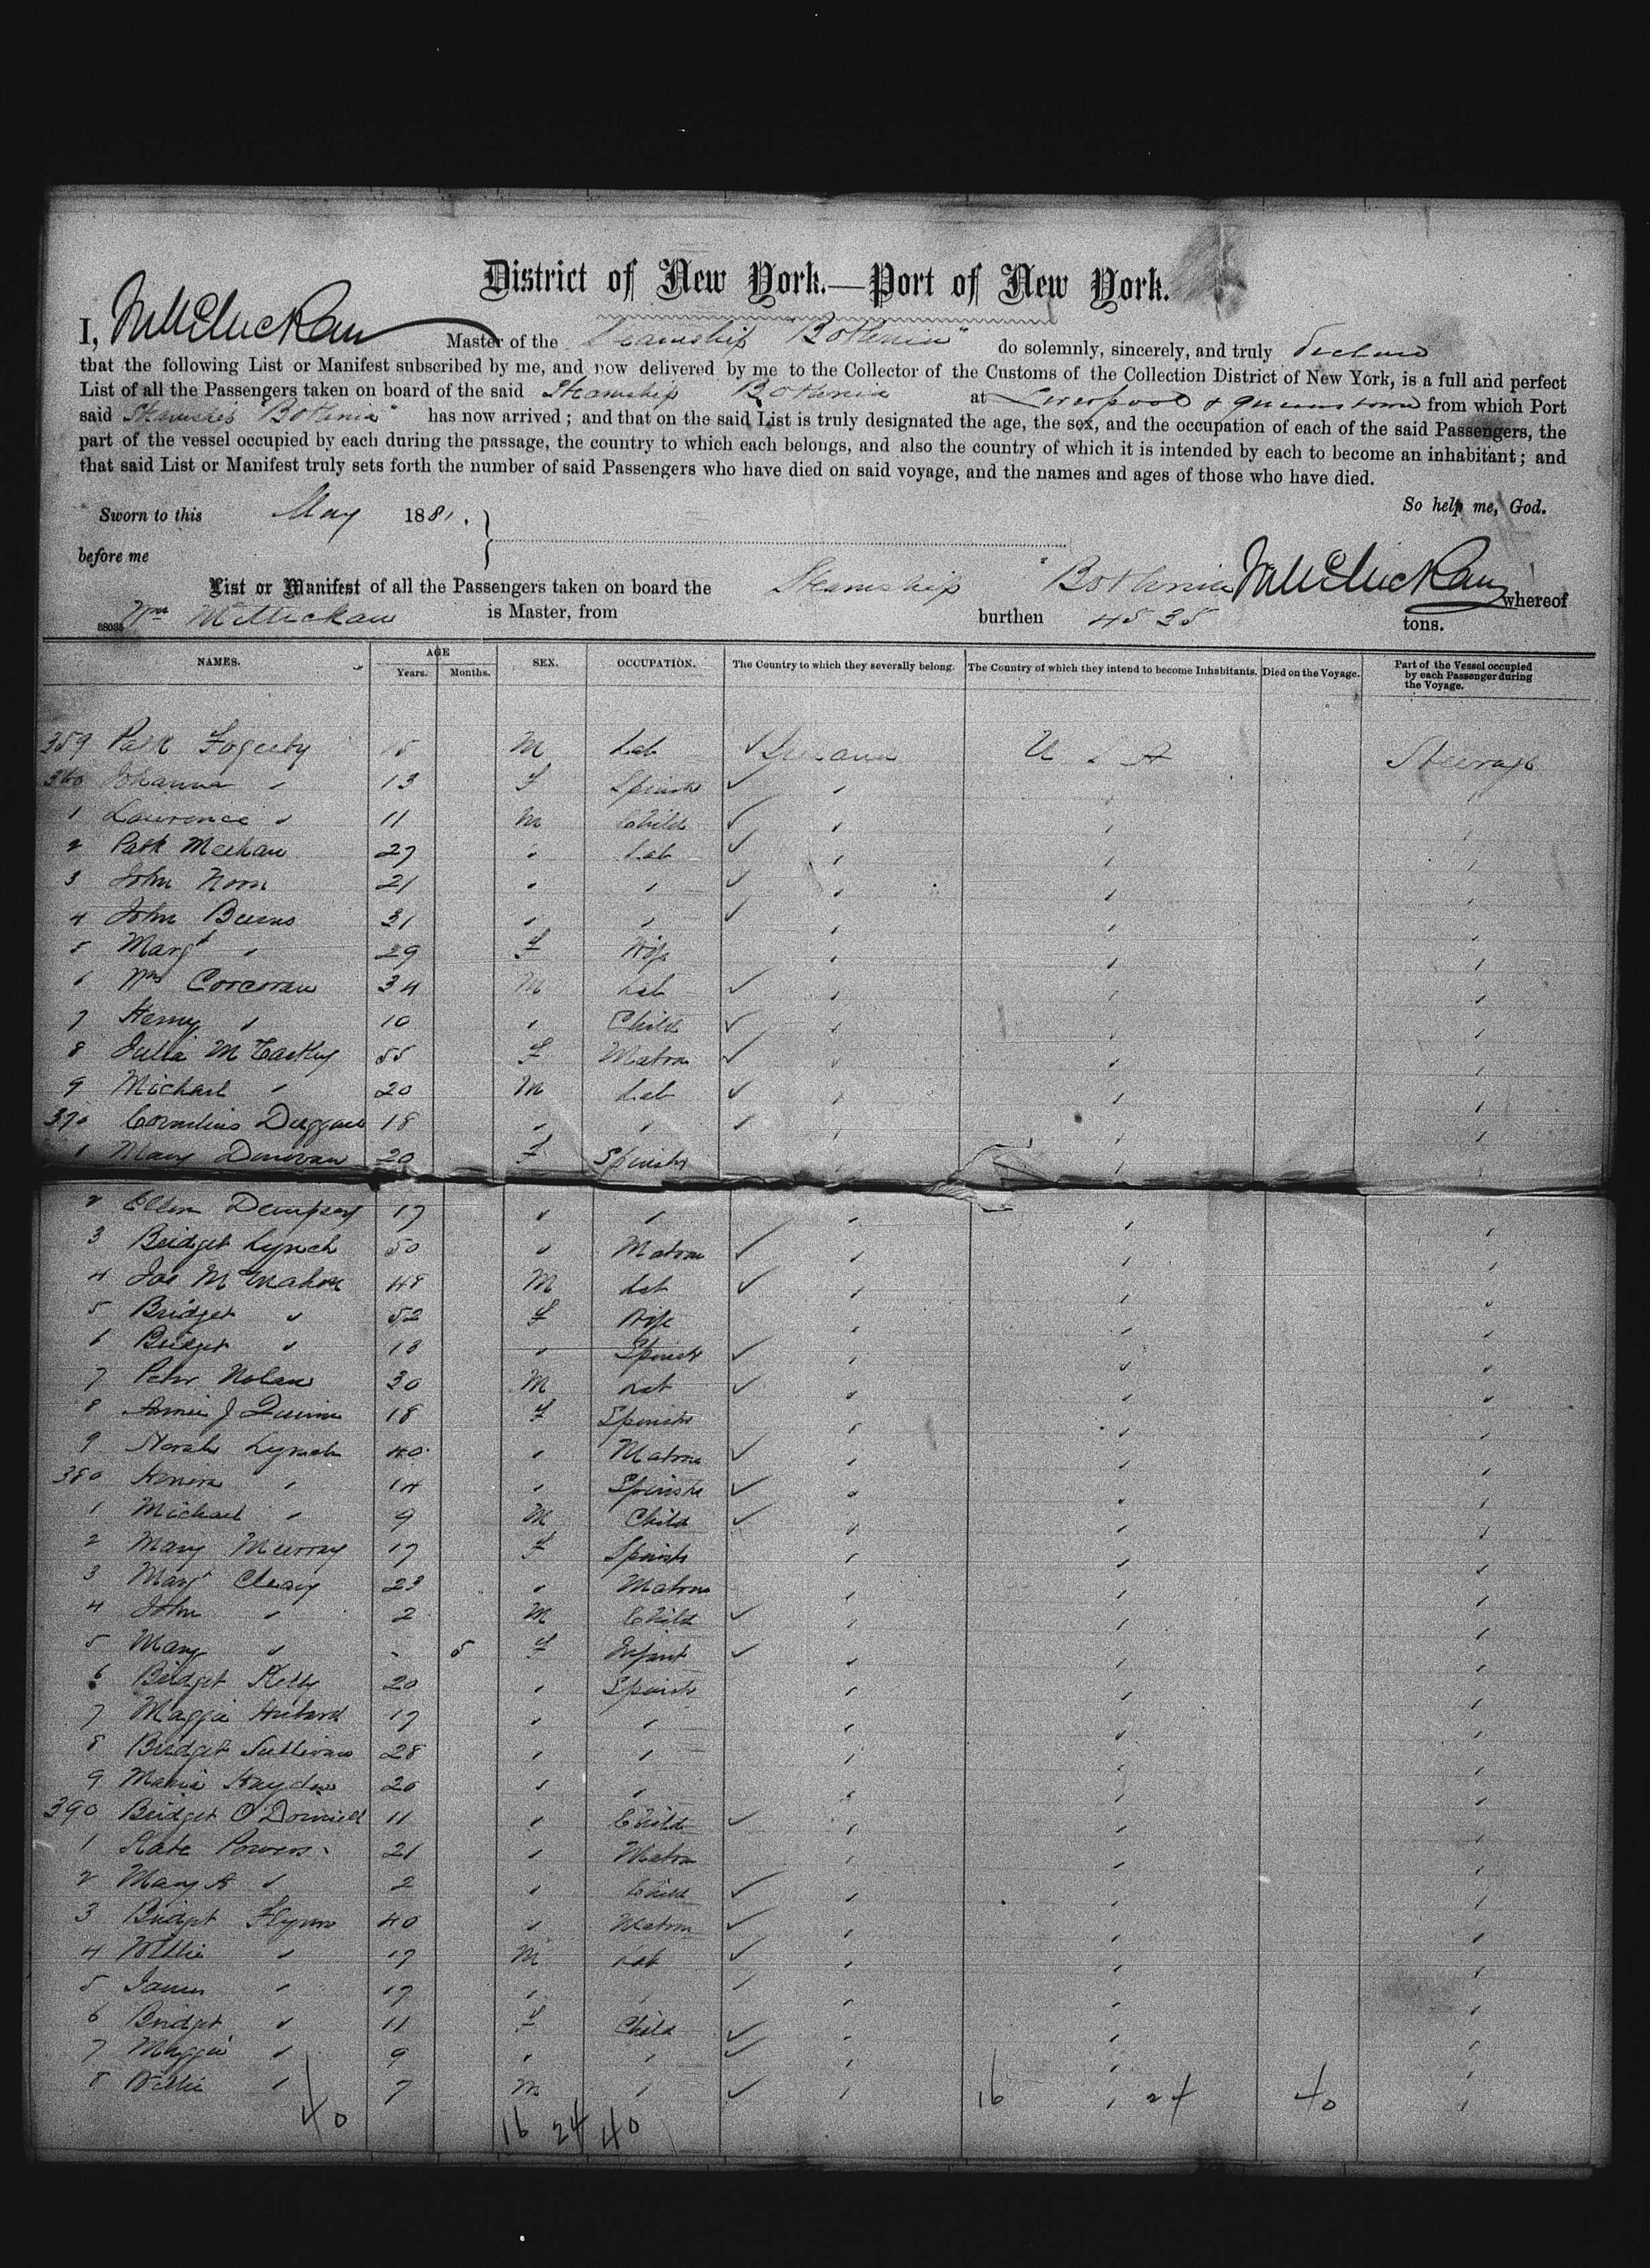 District of New York.—Port of New York.
I, Master of the Steamship "Bothnia" do solemnly, sincerely, and truly declare
that the following List or Manifest subscribed by me, and now delivered by me to the Collector of the Customs of the Collection District of New York, is a full and perfect
List of all the Passengers taken on board of the said Steamship Bothnia at Liverpool & Queenstown from which Port
said Steamship Bothnia" has now arrived; and that on the said List is truly designated the age, the sex, and the occupation of each of the said Passengers, the
part of the vessel occupied by each during the passage, the country to which each belongs, and also the country of which it is intended by each to become an inhabitant; and
that said List or Manifest truly sets forth the number of said Passengers who have died on said voyage, and the names and ages of those who have died.
So help me, God.
Sworn to this May 1881.
before me
List or Manifest of all the Passengers taken on board the Steamship "Bothnia whereof
38035 Wm is Master, from burthen 4535 tons.
NAMES. AGE Years. Months. SEX. OCCUPATION. The Country to which they severally belong. The Country of which they intend to become Inhabitants. Died on the Voyage. Part of the Vessel occupied by each Passenger during the Voyage.
359 Patk Fogerty 15 M Lab ✓ Ireland U S A Steerage
360 Johanna " 13 F Spinstr ✓ " " "
1 Lawrence " 11 M Child ✓ " " "
2 Patk Meehan 27 " Lab ✓ " " "
3 John 21 " " ✓ " " "
4 John Burns 31 " " ✓ " " "
5 Margt " 29 F Wife " " "
6 Wm Corcoran 34 M Lab ✓ " " "
7 Henry " 10 " Child ✓ " " "
8 Julia 55 F Matron ✓ " " "
9 Michael " 20 M Lab ✓ " " "
370 Cornelius Duggan 18 " " ✓ " " "
1 Mary Donovan 20 F Spinstr " "
2 Ellen Dempsey 17 " " " " "
3 Bridget Lynch 50 " Matron ✓ " " "
4 Jas McMahon 48 M Lab ✓ " " "
5 Bridget " 52 F Wife " " "
6 Bridget " 13 " Spinstr ✓ " " "
7 Peter Nolan 30 M Lab ✓ " " "
8 Annie J Quinn 18 F Spinstr " " "
9 Norah Lynch 40 " Matron ✓ " " "
380 " 14 " Spinstr ✓ " " "
1 Michael " 9 M Child ✓ " " "
2 Mary Murray 17 F Spinstr " " "
3 Margt Cleary 23 " Matron " " "
4 John " 2 M Child ✓ " " "
5 Mary " - 5 F Infant ✓ " " "
6 Bridget Kelly 20 " Spinstr " " "
7 Maggie 17 " " " " "
8 Bridget Sullivan 28 " " " " "
9 Maria Hayden 20 " " " " "
390 Bridget O'Donnell 11 " Child ✓ " " "
1 Kate Powers 21 " Matron " " "
2 Mary A " 2 " Child ✓ " " "
3 Bridget Flynn 40 " Matron ✓ " " "
4 Willie " 17 M Lab ✓ " " "
5 James " 17 " " " " "
6 Bridget " 11 F Child ✓ " " "
7 Maggie " 9 " " ✓ " " "
8 Willie " 7 M " ✓ " " "
40 16 24 40 16 24 40